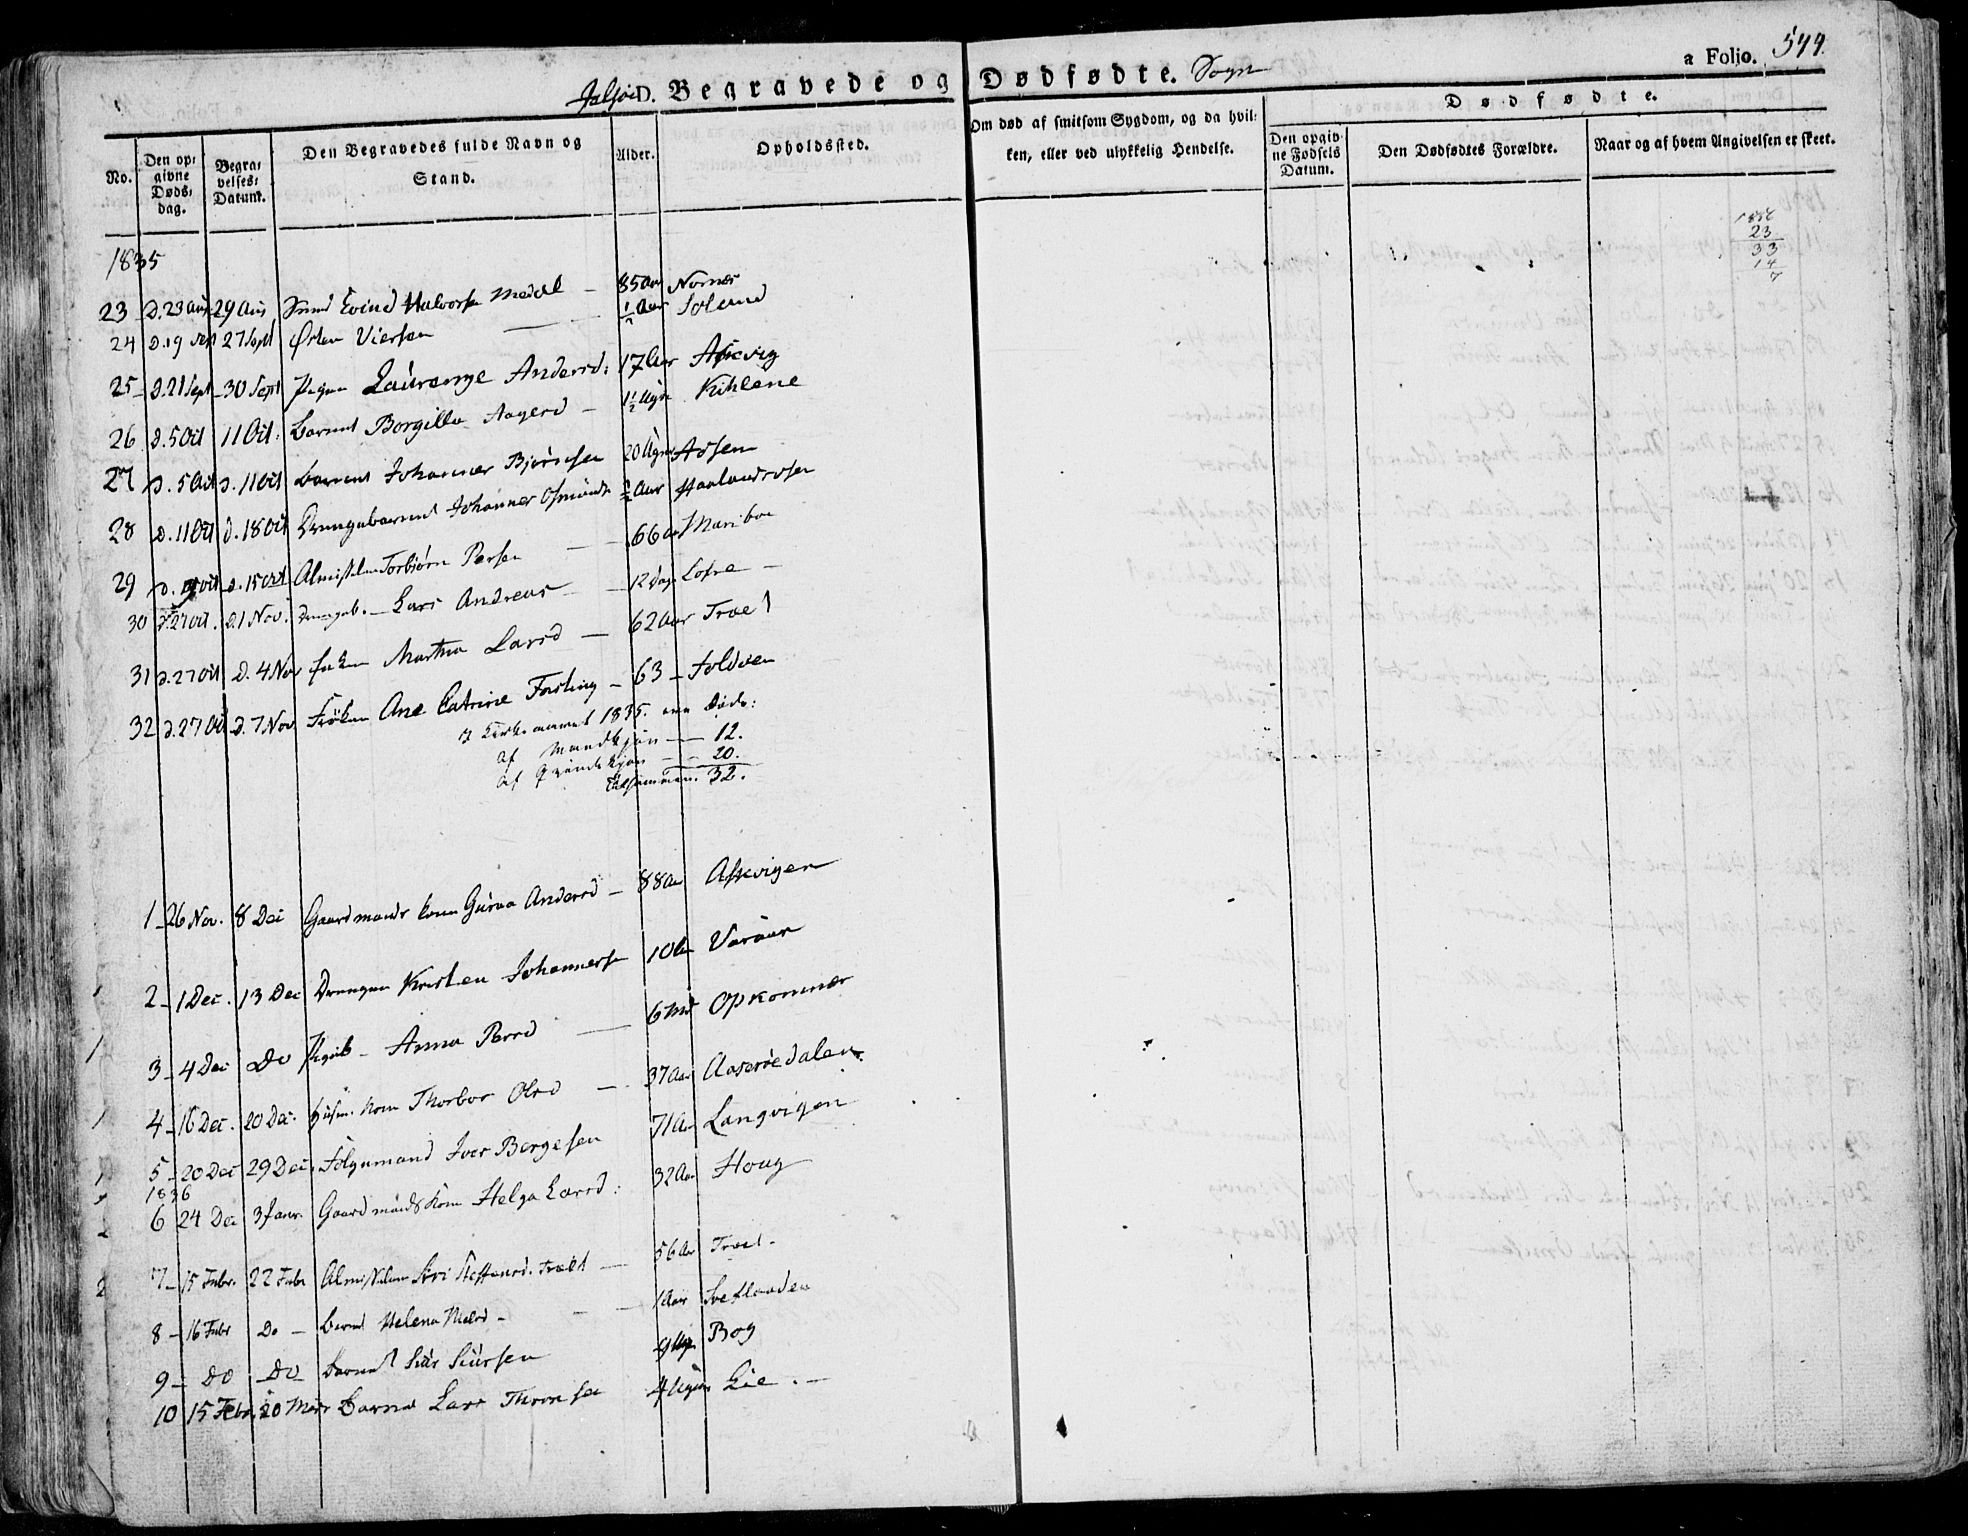 Jelsøe D. Begravede og Dødfødte. Sogn
a Foljo. 544.
No. Den opgivne Dødsdag. Begravelses-Datum. Den Begravedes fulde Navn og Stand. Alder. Opholdssted. Om død af smitsom Sygdom, og da hvilken, eller ved ulykkelig Hendelse. Dødfødte. Den opgivne Fødsels Datum. Den Dødfødtes Forældre. Naar og af hvem Angivelsen er skeet.
1835
23 D. 23 Aug 29 Aug Evind Halvorsen Medal – 85 Aar Nornes
24 D. 19 Sept 27 Sept Østen Viersen – Aar Soland
25 – D. 21 Sept – 30 Sept Pigen Laurenze Andersd: 17 Aar Askvig
26 D. 5 Oct 11 Oct. Barnet Borgilla Aagesd – 1½ Uge Kihlene
27 D. 5 Oct D. 11 Oct Barnet Johannes Bjørnsen 20 Uger Aasen
28 D. 11 Oct D. 18 Oct Drengebarnet Johannes Osmunds ½ Aar Haalandsosen
29 D. Oct D. 15 Oct Almislem Torbjørn Persen – 66 Aar Mariboe
30 D. 27 Oct. D. 1 Nov. Drengeb. – Lars Andreas – 12 Dage Lofre –
31 D. 27 Oct D. 4 Nov Martha Larsd – 62 Aar Trael
32 D. 27 Oct D. 7 Nov Frøken Ane Catrine Forsting – 63 – Foldøen
I Kirkeaaret 1835. ere Døde:
af Mandkjøn – 12.
af Qvindekjøn – 20.
Tilsammen. 32.
1 – 26 Nov. 8 Dec Gaardmands kone Guroe Andersd – 88 Aar Askvigen
2 – 1 Dec. 13 Dec Drengen Kristen Johannesen 10 Uger Varaar
3 – 4 Dec Do Pigeb – Anna Persd – 6 Md Opkommer
4 – 16 Dec. 20 Dec. Husm. Kone Thorbor Olsd – 37 Aar Aaserøedalen
5 – 20 Dec 29 Dec. Følgemand Iver Børgesen 71 Aar Langvigen
1836
6 24 Dec 3 Janr. Gaardmands Kone Helga Larsd: 32 Aar Houg
7 – 15 Febr. 22 Febr Almislem Siri Trael – 56 Aar Trael –
8 – 16 Febr Do – Barnet Helena Nielsd – 1 Aar
9 – Do Do Barnet Siur Siursen 9 Uger Bog
10 15 Febr. 20 Mars Barnet Lars Thorsen 4 Uger Lie. –
23
33
14
7